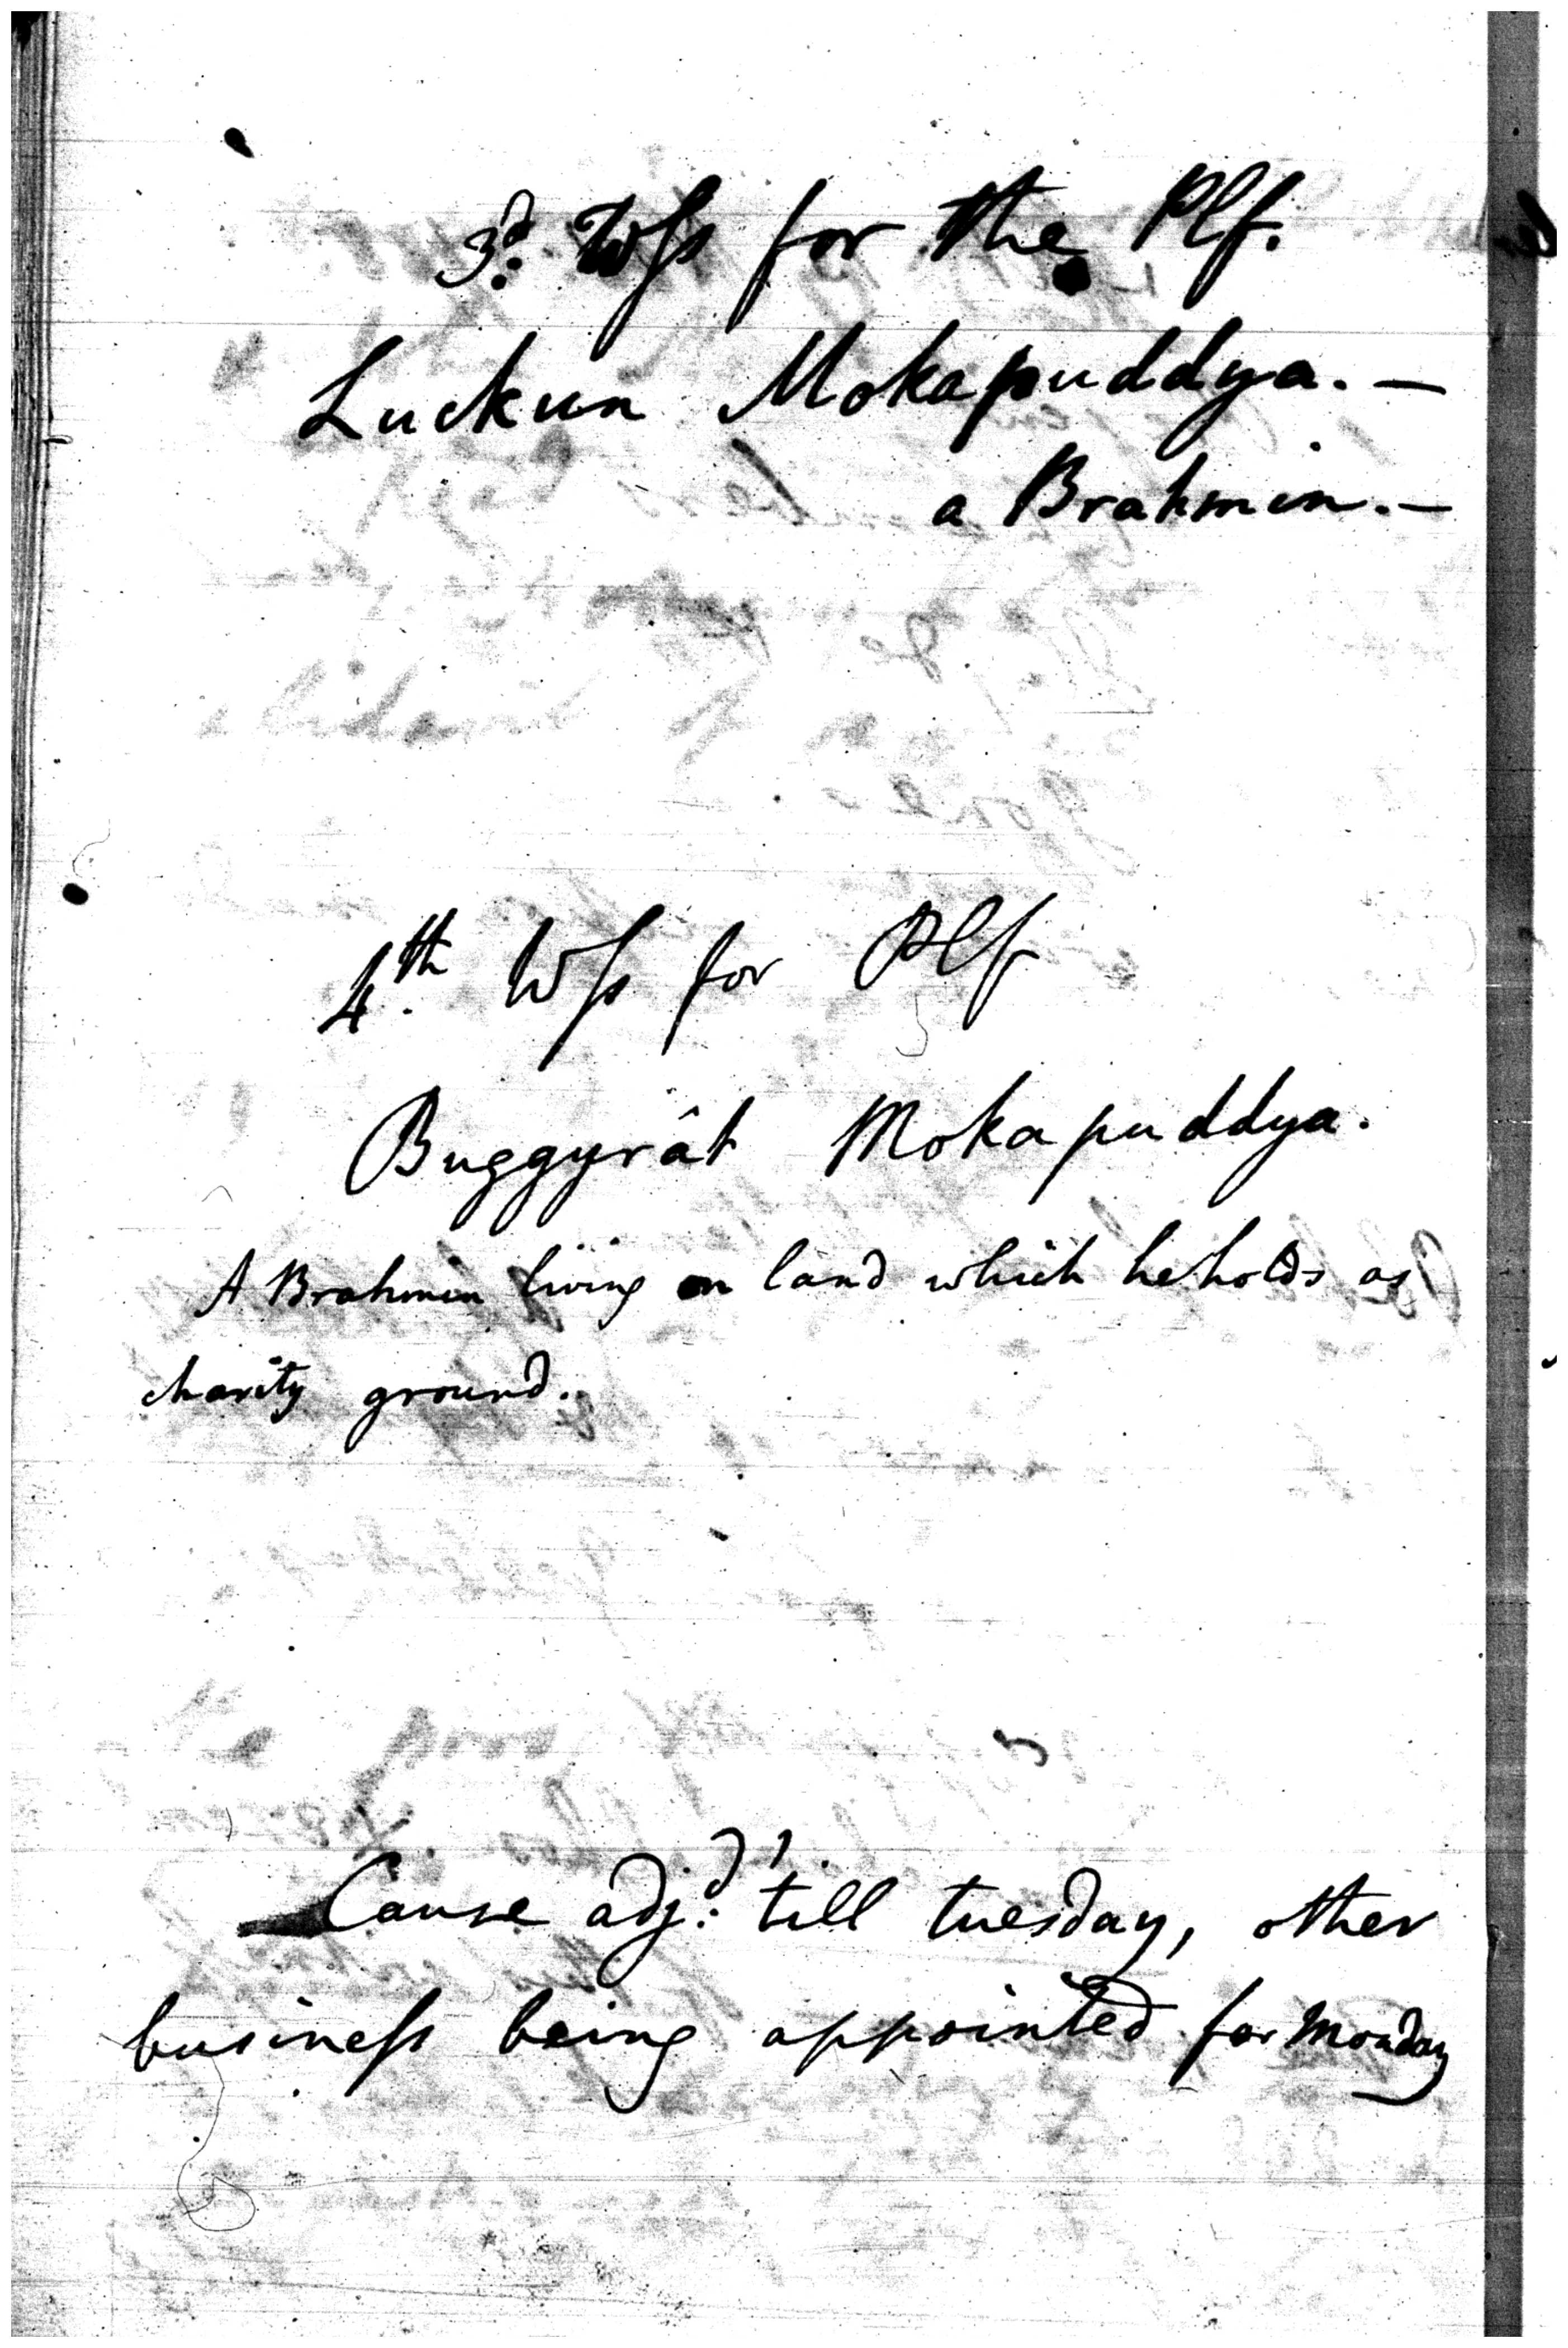 3d. Wſs for the Plf.
Luckun Mokapuddya. —
a Brahmin. —
4th. Wſs for Plf
Buggyrât Mokapuddya.
A Brahmin living on land which he holds as
charity ground.
Cause adj.d 'till tuesday, other
buſineſs being appointed for Monday